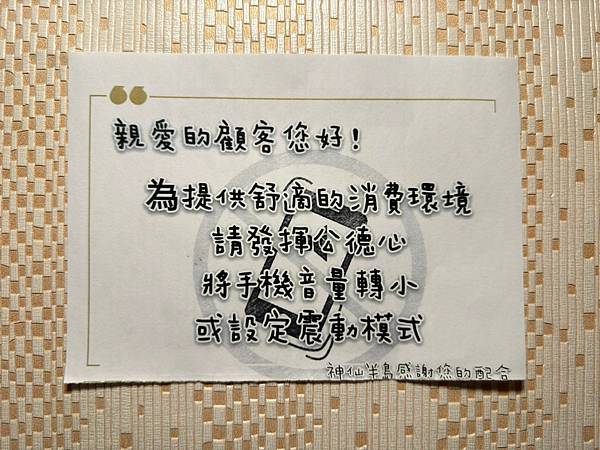 親愛的顧客您好!
為提供舒適的消費環境
請發揮公德心
將手機音量轉小
或設定震動模式
神仙半島感謝您的配合